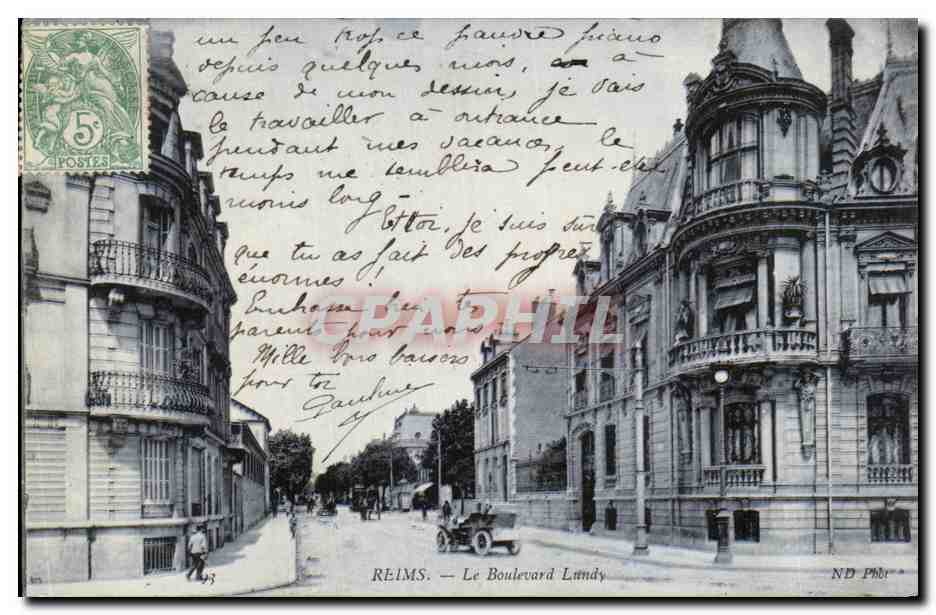 un peu trop ce pauvre piano
depuis quelques mois, à
cause de mon dessin, je vais
le travailler à outrance
pendant mes vacances, le
temps me semblera peut-être
moins long.
Et toi, je suis sûr
que tu as fait des progrès
énormes!
Embrasse bien tes
parents pour nous
Mille bons baisers
pour toi
Pauline
5c
POSTES
CARTE POSTALE
CPAPHIL
93 REIMS. — Le Boulevard Lundy
ND Phot